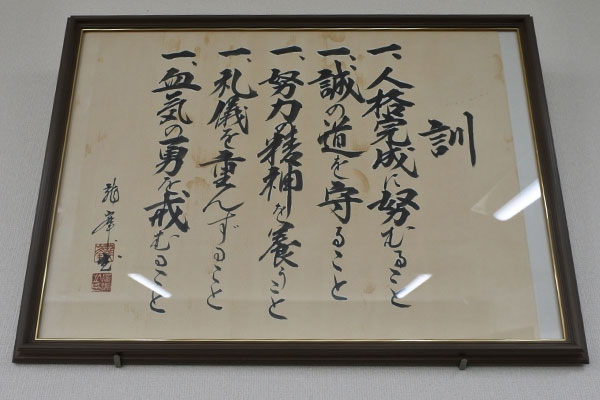 訓
一、人格完成に努むること
一、誠の道を守ること
一、努力の精神を養うこと
一、礼儀を重んずること
一、血気の勇を戒むること
龍峯書